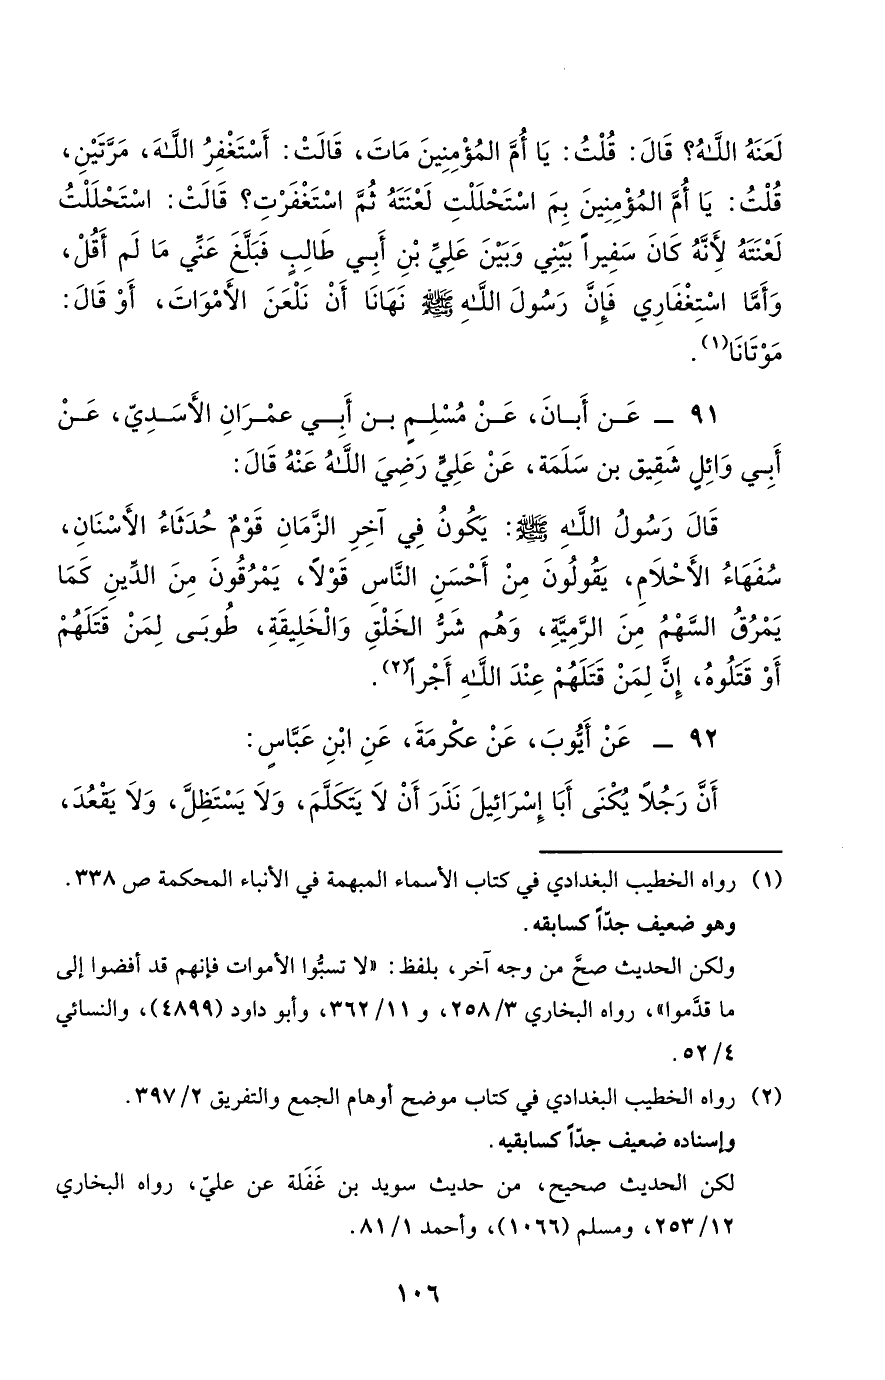 لَعَنَهُ اللَّهُ؟ قَالَ: قُلْتُ: يَا أُمَّ المُؤْمِنِينَ مَاتَ، قَالَتْ: أَسْتَغْفِرُ اللَّهَ، مَرَّتَيْنِ،
قُلْتُ: يَا أُمَّ المُؤْمِنِينَ بِمَ اسْتَحْلَلْتِ لَعْنَتَهُ ثُمَّ اسْتَغْفَرْتِ؟ قَالَتْ: اسْتَحْلَلْتُ
لَعْنَتَهُ لِأَنَّهُ كَانَ سَفِيراً بَيْنِي وَبَيْنَ عَلِيِّ بْنِ أَبِي طَالِبٍ فَبَلَّغَ عَنِّي مَا لَم أَقُلْ،
وَأَمَّا اسْتِغْفَارِي فَإِنَّ رَسُولَ اللَّهِ ﷺ نَهَانَا أَنْ نَلْعَنَ الأَمْوَاتَ، أَوْ قَالَ:
مَوْتَانَا(١).
٩١ ـ عَن أَبانَ، عَنْ مُسْلِمٍ بن أَبِي عمْرَانِ الأَسَدِيّ، عَنْ
أَبِي وَائِلٍ شَقِيق بن سَلَمَة، عَنْ عَلِيٍّ رَضِيَ اللَّهُ عَنْهُ قَالَ:
قَالَ رَسُولُ اللَّهِ ﷺ: يَكُونُ فِي آخِرِ الزَّمَانِ قَوْمٌ حُدَثَاءُ الأَسْنَانِ،
سُفَهَاءُ الأَحْلَامِ، يَقُولُونَ مِنْ أَحْسَنِ النَّاسِ قَوْلاً، يَمْرُقُونَ مِنَ الدِّينِ كَمَا
يَمْرُقُ السَّهْمُ مِنَ الرَّمِيَّةِ، وَهُم شَرُّ الخَلْقِ وَالْخَلِيقَةِ، طُوبَى لِمَنْ قَتَلَهُمْ
أَوْ قَتَلُوهُ، إِنَّ لِمَنْ قَتَلَهُمْ عِنْدَ اللَّهِ أَجْراً(٢).
٩٢ ـ عَنْ أَيُّوبَ، عَنْ عكْرِمَةَ، عَنِ ابْنِ عَبَّاسٍ:
أَنَّ رَجُلاً يُكْنَى أَبَا إِسْرَائِيلَ نَذَرَ أَنْ لَا يَتَكَلَّمَ، وَلَا يَسْتَظِلَّ، وَلَا يَقْعُدَ،
(١) رواه الخطيب البغدادي في كتاب الأسماء المبهمة في الأنباء المحكمة ص ٣٣٨.
وهو ضعيف جدّاً كسابقه.
ولكن الحديث صحَّ من وجه آخر، بلفظ: «لا تسبُّوا الأموات فإنهم قد أفضوا إلى
ما قدَّموا»، رواه البخاري ٢٥٨/٣، و ٣٦٢/١١، وأبو داود (٤٨٩٩)، والنسائي
٥٢/٤.
(٢) رواه الخطيب البغدادي في كتاب موضح أوهام الجمع والتفريق ٣٩٧/٢.
وإسناده ضعيف جدّاً كسابقيه.
لكن الحديث صحيح، من حديث سويد بن غَفَلة عن عليّ، رواه البخاري
٢٥٣/١٢، ومسلم (١٠٦٦)، وأحمد ٨١/١.
١٠٦